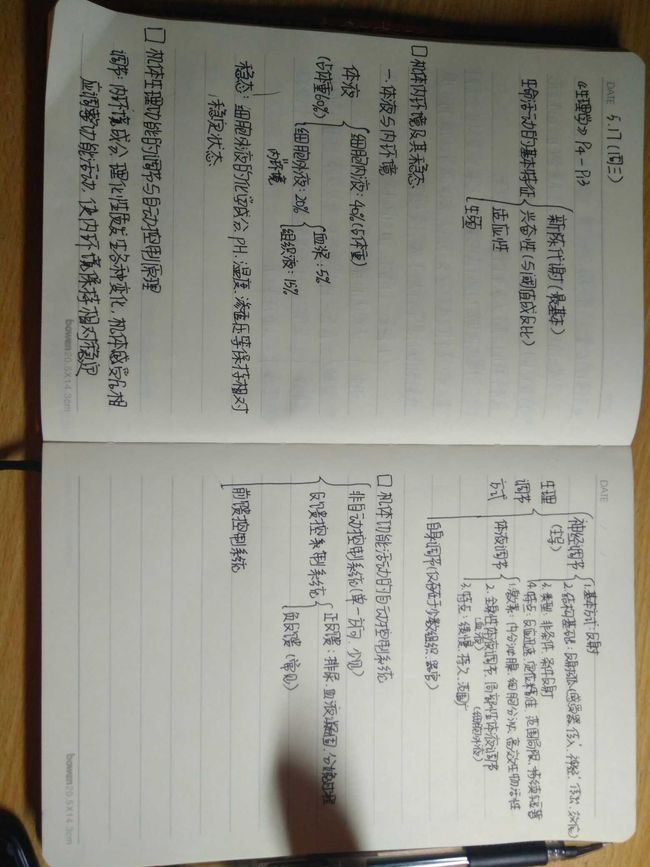 DATE 5.17(周三)
《生理学》 P4-P13
生命活动的基本特征
新陈代谢(最基本)
兴奋性(与阈值成反比)
适应性
生殖
□ 机体内环境及其稳态
一.体液与内环境
体液
(占体重60%)
细胞内液:40%(占体重)
细胞外液:20%
内环境
血浆:5%
组织液:15%
稳态:细胞外液的化学成分、pH、温度、渗透压等保持相对
稳定状态
□ 机体生理功能的调节与自动控制原理
调节:内环境成分、理化性质发生各种变化,机体感受后相
应调整功能活动,使内环境保持相对稳定
bowen20.5X14.3cm
DATE
生理
调节
方式
神经调节
(主导)
1.基本方式:反射
2.结构基础:反射弧(感受器、传入、神经、传出、效应)
3.类型:非条件、条件反射
4.特点:反应迅速、定位精准、范围局限、持续短暂
体液调节
1.激素:内分泌腺、细胞分泌,高效生物活性
2.全身性体液调节、局部性体液调节
(血液)
(细胞外液)
3.特点:缓慢、持久、范围广
自身调节(仅存在于少数组织、器官)
□ 机体功能活动的自动控制系统
非自动控制系统(单一方向、少见)
反馈控制系统
正反馈:排尿、血液凝固、分娩过程
负反馈(常见)
前馈控制系统
bowen20.5X14.3cm